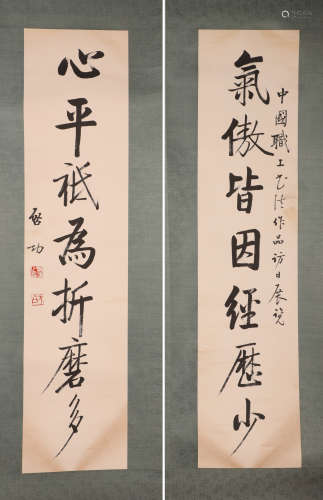 氣傲皆因經歷少
中國職工書法作品訪日展覽
心平祗為折磨多
啟功